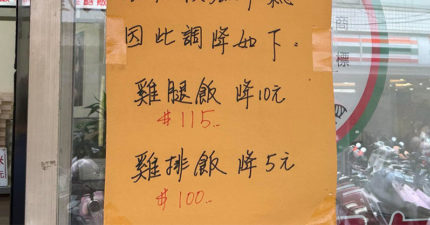 因此調降如下。
雞腿飯 降10元
$115..
雞排飯 降5元
$100..
商
標